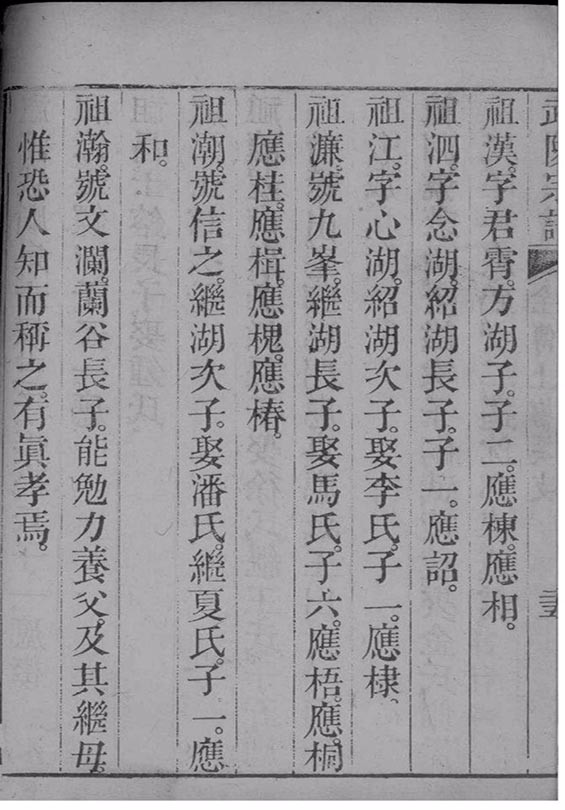 祖漢。字君霄。方湖子。子二。應棟。應相。
祖泗。字念湖。紹湖長子。子一。應詔。
祖江。字心湖。紹湖次子。娶李氏。子一。應棣。
祖濂。號九峯。繼湖長子。娶馬氏。子六。應梧。應桐
應桂。應楫。應槐。應椿。
祖潮。號信之。繼湖次子。娶潘氏。繼夏氏。子一。應
和。
祖瀚。號文瀾。蘭谷長子。能勉力養父。及其繼母。
惟恐人知而稱之。有眞孝焉。